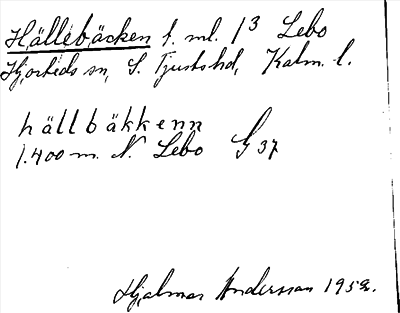 Hällebäcken t. ml. 1/3 Lebo
Hjorteds sn, S. Tjusts hd, Kalm. l.
hällbäkkenn
1.400 m. N. Lebo G 37
Hjalmar Andersson 1952.